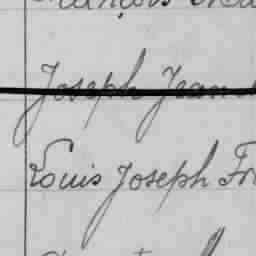 Joseph Jean
Louis Joseph Fr